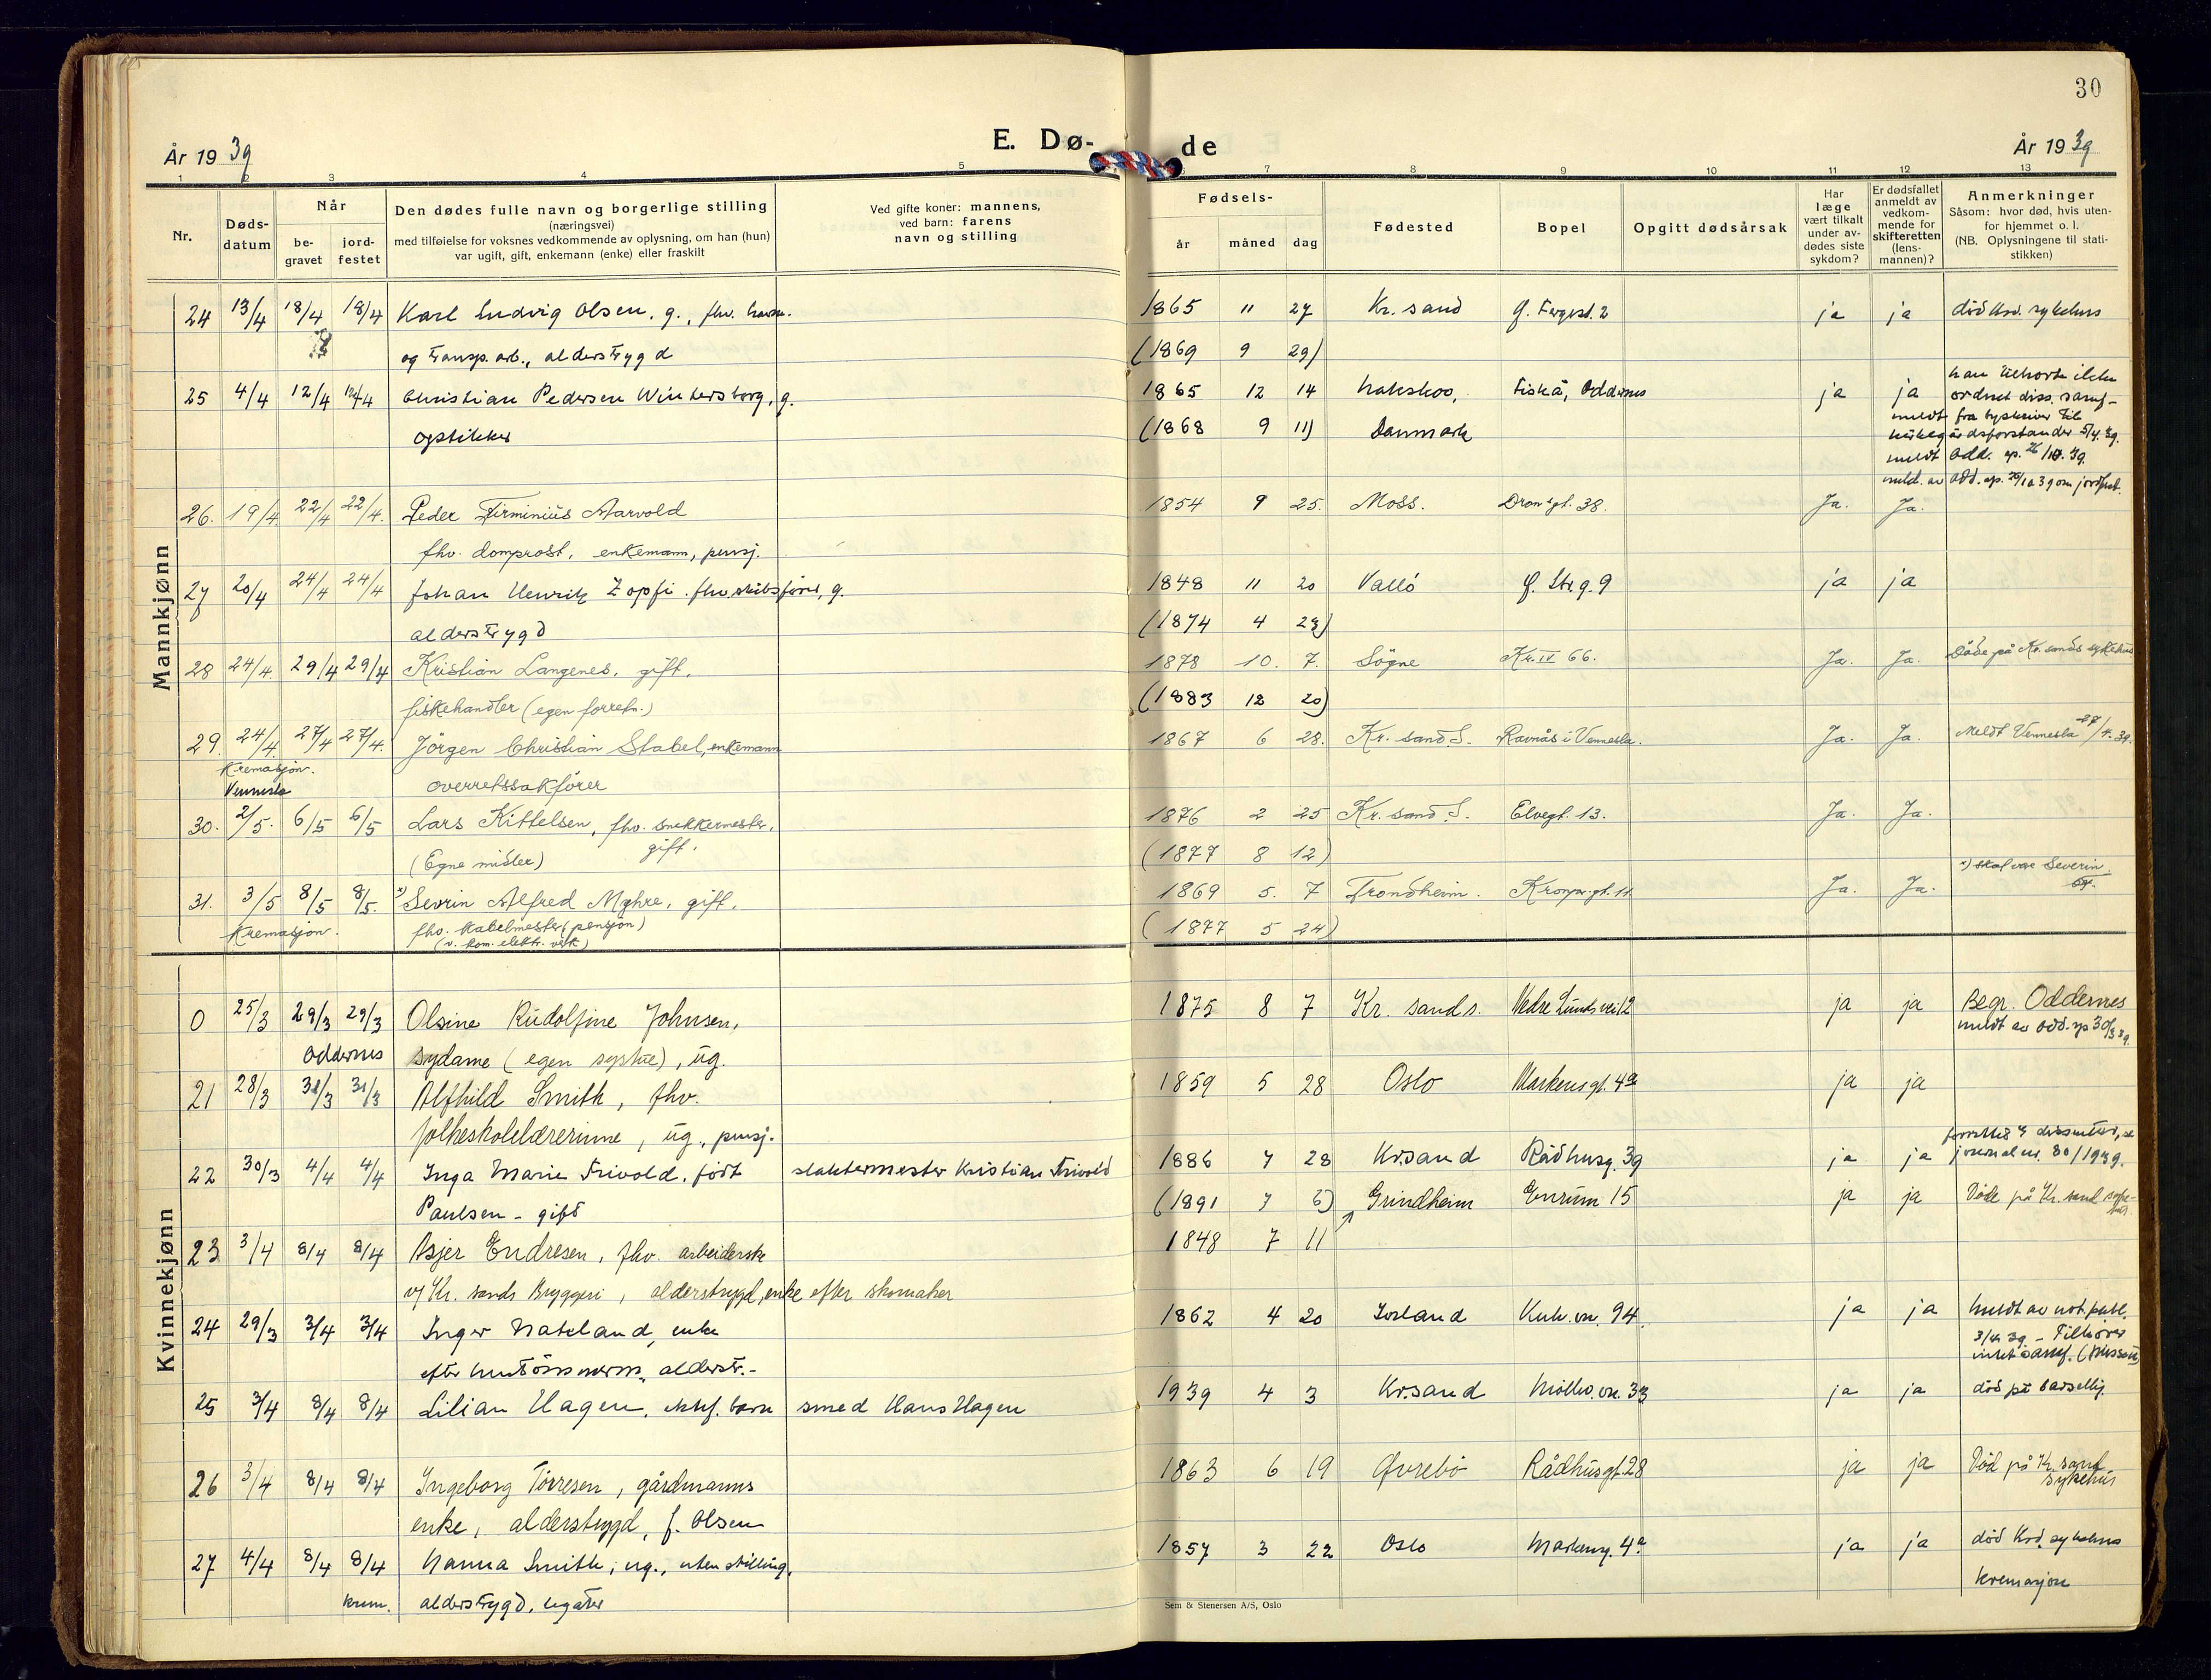 30
År 19 39
E. Dø-
de
År 19 39
1 2 3 4 5 6 7 8 9 10 11 12 13
Nr.
Døds-
datum
Når
be-
gravet
jord-
festet
Den dødes fulle navn og borgerlige stilling
(næringsvei)
med tilføielse for voksnes vedkommende av oplysning, om han (hun)
var ugift, gift, enkemann (enke) eller fraskilt
Ved gifte koner: mannens,
ved barn: farens
navn og stilling
Fødsels-
år måned dag
Fødested
Bopel
Opgitt dødsårsak
Har
læge
vært tilkalt
under av-
dødes siste
sykdom?
Er dødsfallet
anmeldt av
vedkom-
mende for
skifteretten
(lens-
mannen)?
Anmerkninger
Såsom: hvor død, hvis uten-
for hjemmet o. l.
(NB. Oplysningene til stati-
stikken)
Mannkjønn
24 13/4 18/4 18/4 Karl Ludvig Olsen, g., fhv. havn- 1865 11 27 Kr. sand Ø. Fergest. 2 ja ja död Krsd. sykehus
og transp. arb., alderstrygd (1869 9 29)
25 4/4 12/4 12/4 Christian Pedersen Wintersborg, g. 1865 12 14 Nakskov, Fiskå, Oddernes ja ja han tilhørte ikke
ordnet diss. samf-
opstikker (1868 9 11) Danmark
meldt fra byskriver til
kirkegårdsforstander 5/4. 39.
meldt Odd. sp.
meld. av Odd. sp. om jordfest.
26. 19/4 22/4 22/4. Peder Firminius Aarvold 1854 9 25. Moss. Dron.gt. 38. Ja. Ja.
fhv. domprost, enkemann, pensj.
27 20/4 24/4 24/4 Johan Henrik Zopfi. fhv. skibsfører, g. 1848 11 20 Vallö Ø. Str. g. 9 ja ja
alderstrygd (1874 4 23)
28 24/4. 29/4 29/4 Kristian Langenes, gift, 1878 10. 7. Sögne Kr. IV 66. Ja. Ja. Döde på Kr. sands sykehus
fiskehandler (egen forretn.) (1883 12 20)
29. 24/4 27/4 27/4. Jörgen Christian Stabel, enkemann 1867 6 28. Kr. sand S. Ravnås i Vennesla. Ja. Ja. Meldt Vennesla 27/4. 39.
Kremasjon.
Vennesla overretssakförer
30. 2/5. 6/5 6/5 Lars Kittelsen, fhv. snekkermester, 1876 2 25 Kr. sand S. Elvegt. 13. Ja. Ja.
(Egne midler) gift. (1877 8 12)
x) skal være Severin.
31. 3/5 8/5 8/5. x) Sevrin Alfred Myhre, gift, 1869 5. 7 Trondheim. Kronpr. gt. 11 Ja. Ja.
Kremasjon. fhv. kabelmester (pensjon) (1877 5 24)
(v. kom. elektr. verk)
Kvinnekjønn
0 25/3 29/3 29/3 Olsine Rudolfine Johnsen, 1875 8 7 Kr. sand s. Nedre Lunds vei 12 ja ja Begr. Oddernes
Oddernes sydame (egen systue), ug. meldt av Odd. sp 30/3 39.
21 28/3 31/3 31/3 Alfhild Smith, fhv. 1859 5 28 Oslo Markensgt. 4a ja ja
folkeskolelærerinne, ug., pensj.
22 30/3 4/4 4/4 Inga Marie Trivold, født slaktermester Kristian Trivold 1886 7 28 Kr.sand Rådhusg. 39 ja ja forrettes dissenter, se
journal nr. 80/1939.
Paulsen - gift (1891 7 6) Grindheim Enrum 15 ja ja Döde på Kr. sand syke-
hus.
23 3/4 8/4 8/4 Asjer Endresen, fhv. arbeiderske 1848 7 11
v/ Kr. sands Bryggeri, alderstrygd, enke efter skomaker
24 29/3 3/4 3/4 Inger Nateland, enke 1862 4 20 Iveland Kuh. vn. 94. ja ja meldt av not. publ.
3/4 39 - Tilhører
efter alderstr.- intet samf. (Dissent)
25 3/4 8/4 8/4 Lilian Hagen, ektef. barn smed Hans Hagen 1939 4 3 Kr.sand Möllev. vn. 33 ja ja död på barsellhj.
26 3/4 8/4 8/4 Ingeborg Torresen, gårdmanns 1863 6 19 Øvrebö Rådhusgt. 28 ja ja Död på Kr. sand
sykehus
enke, alderstrygd, f. Olsen
27 4/4 8/4 8/4 Hanna Smith, ug., uten stilling, 1857 3 22 Oslo Markensg. 4a ja ja död Krsd. sykehus
krem. alderstrygd, legater kremasjon
Sem & Stenersen A/S, Oslo